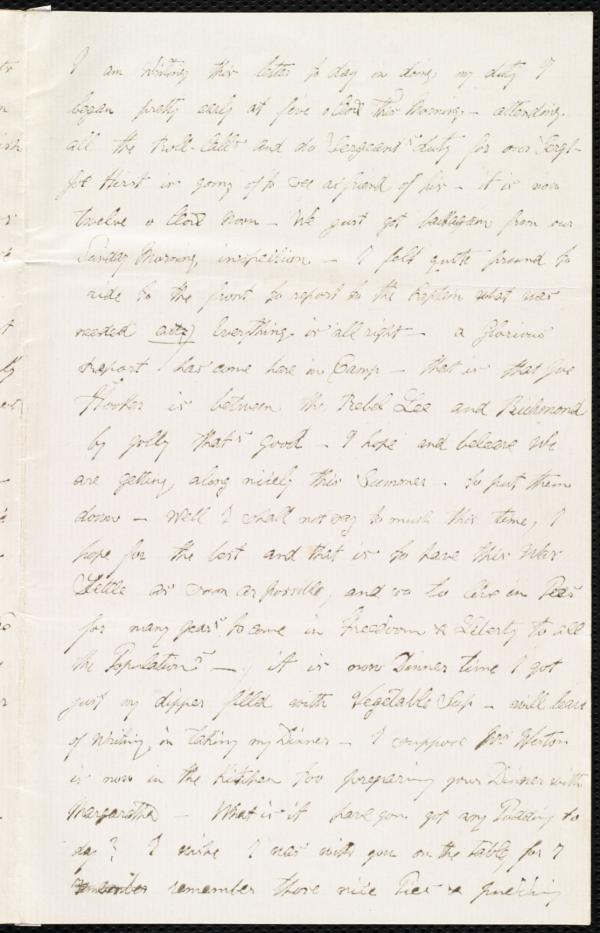 I am Writing this letter to day in doing my duty I
began pretty early at five o Clock this Morning – attending
all the Roll-Calls and do Sergeant's duty for our Sergt-
for Hurst is going of to see a friend of his – it is now
twelve o Clock Noon – We just got back again from our
Sunday Morning inspecition – I felt quite proud to
ride to the front to report to the Captain what was
needed Everything is all right – a Glorious
Report has come here in Camp – that is that Joe
Hooker is between the Rebel Lee and Richmond
by golly that's good – I hope and beleave We
are getting along nicely this Summer – to put them
down – Well I shall not say to much this time, I
hope for the best and that is to have this War
Settle as soon as possible, and so to live in Peas
for many years to come in Freedoom & Liberty to all
the Populations – it is now Dinner time I got
just my dipper filled with Vegetable Sup – will leave
of Writing in taking my Dinner – I suppose Mrs Weston
is now in the Kitchen too preparing your Dinner with
Margaretha – What is it have you got any Pudding to
day? I wishe I was with you on the table for I
remember those nice Pies & pudding